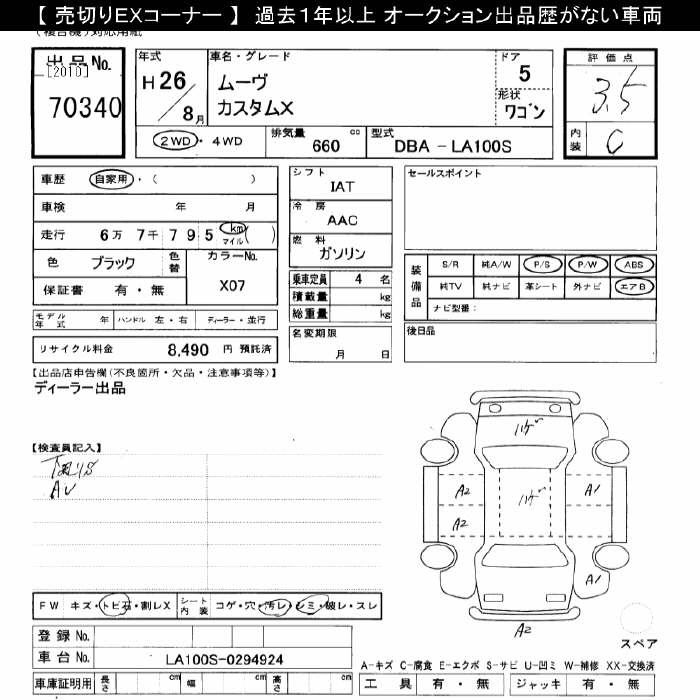 【 売切りEXコーナー 】 過去１年以上 オークション出品歴がない車両
(複合機)対応用紙
出品No.
[2010]
70340
年式
H26
8月
車名・グレード
ムーヴ
カスタムX
ドア
5
形状
ワゴン
評価点
3.5
内装
C
2WD・4WD
排気量
660 cc
型式
DBA - LA100S
車歴 自家用・( )
車検 年 月
走行 6万 7千 7 9 5 km マイル( )
色 ブラック 色替
カラーNo.
X07
保証書 有・無
モデル年式 年 ハンドル 左・右 ディーラー・並行
リサイクル料金 8,490 円 預託済
シフト
IAT
冷房
AAC
燃料
ガソリン
乗車定員 4 名
積載量 kg
総重量 kg
名変期限
月 日
セールスポイント
装備品
S/R 純A/W P/S P/W ABS
純TV 純ナビ 革シート 外ナビ エアB
ナビ型番：
後日品
【出品店申告欄(不良箇所・欠品・注意事項等)】
ディーラー出品
【検査員記入】
AU
ハゲ
ハゲ
A2
A2
A1
A1
A2
スペア
FW キズ・トビ石・割レX
シート内装 コゲ・穴・汚レ・シミ・破レ・スレ
登録No.
車台No. LA100S-0294924
車庫証明用 長さ cm 幅 cm 高さ cm
A-キズ C-腐食 E-エクボ S-サビ U-凹ミ W-補修 XX-交換済
工具 有・無 ジャッキ 有・無